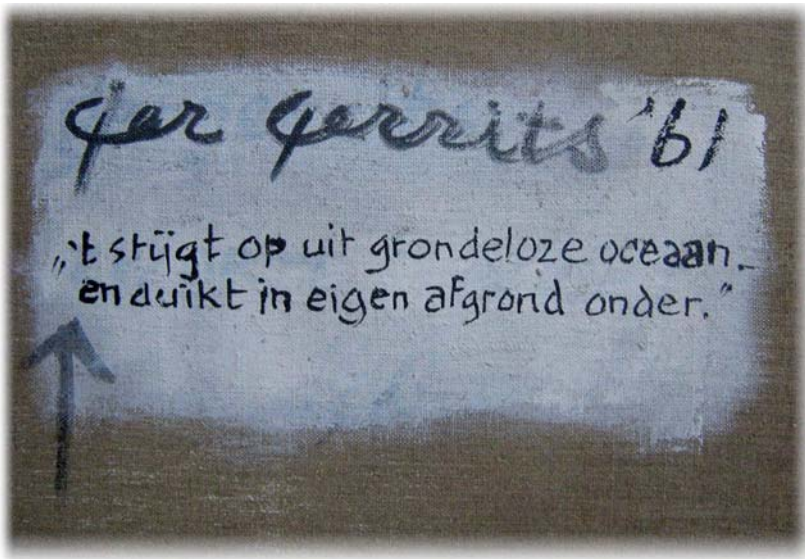 Ger Gerrits '61
„'t stijgt op uit grondeloze oceaan.
en duikt in eigen afgrond onder."